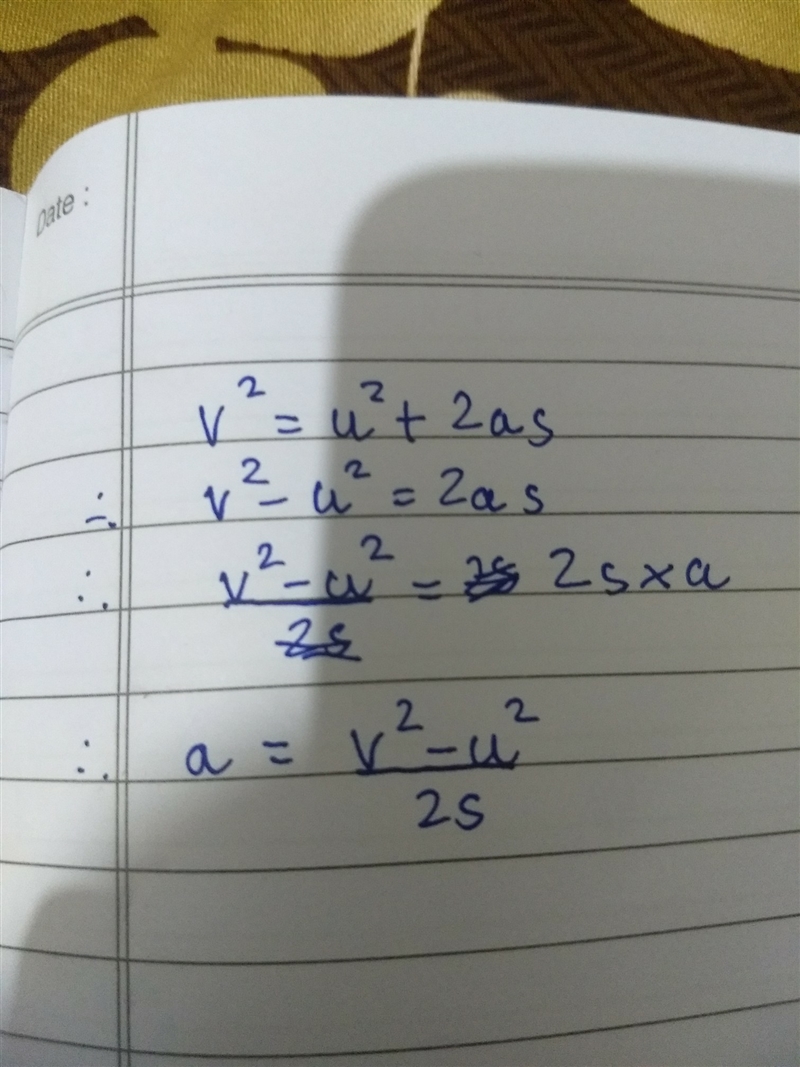 Date :
v² = u² + 2as
∴ v² - u² = 2as
∴ v² - u² = 2s × a
∴ a = v² - u² / 2s